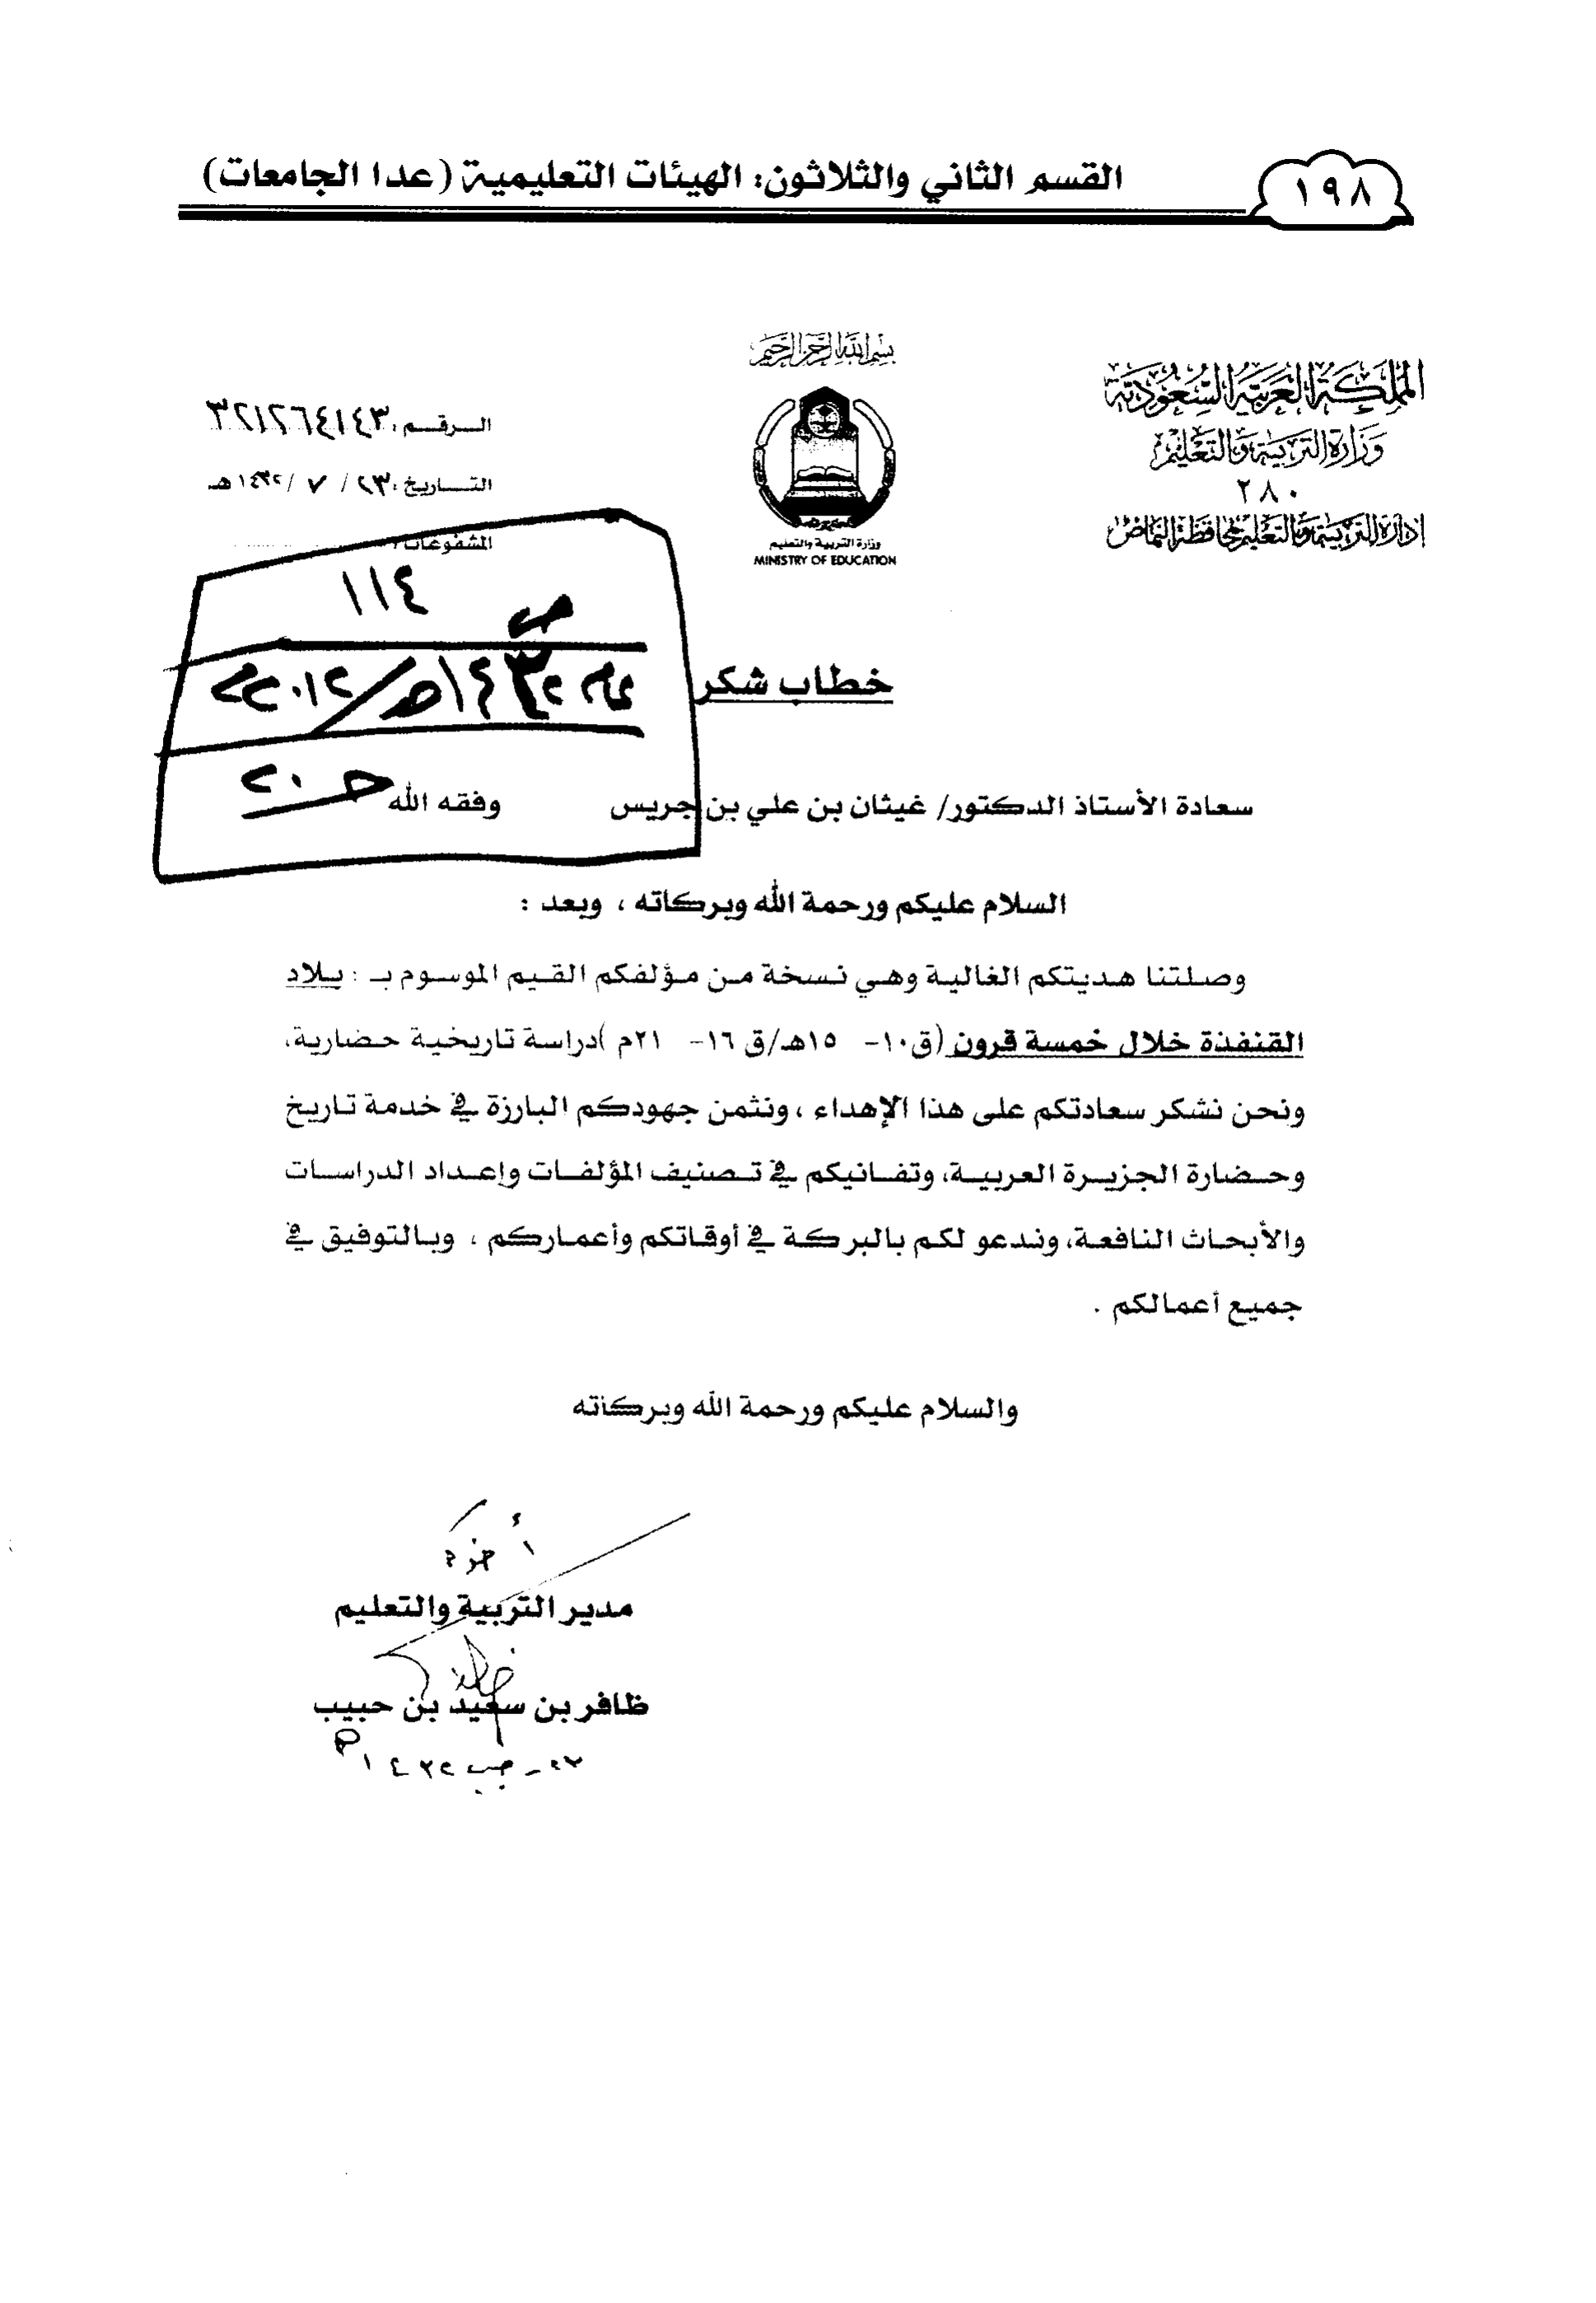 ١٩٨
القسم الثاني والثلاثون: الهيئات التعليمية (عدا الجامعات)
بسم الله الرحمن الرحيم
المملكة العربية السعودية
وزارة التربية والتعليم
٢٨٠
إدارة التربية والتعليم بمحافظة النماص
وزارة التربية والتعليم
MINISTRY OF EDUCATION
الرقم : ٣٢١٢٦٤١٤٣
التاريخ : ٢٣ / ٧ / ١٤٣٢هـ
المشفوعات :
١١٤
ص
عام ١٤٣٢هـ/٢٠١٢م
حـ ٢٠
خطاب شكر
سعادة الأستاذ الدكتور/ غيثان بن علي بن جريس وفقه الله
السلام عليكم ورحمة الله وبركاته ، وبعد :
وصلتنا هديتكم الغالية وهي نسخة من مؤلفكم القيم الموسوم بـ : بلاد
القنفذة خلال خمسة قرون (ق١٠- ١٥هـ/ق ١٦- ٢١م )دراسة تاريخية حضارية،
ونحن نشكر سعادتكم على هذا الإهداء ، ونثمن جهودكم البارزة في خدمة تاريخ
وحضارة الجزيرة العربية، وتفانيكم في تصنيف المؤلفات وإعداد الدراسات
والأبحاث النافعة، وندعو لكم بالبركة في أوقاتكم وأعماركم ، وبالتوفيق في
جميع أعمالكم .
والسلام عليكم ورحمة الله وبركاته
مدير التربية والتعليم
ظافر بن سعيد بن حبيب
رجب ١٤٣٢هـ